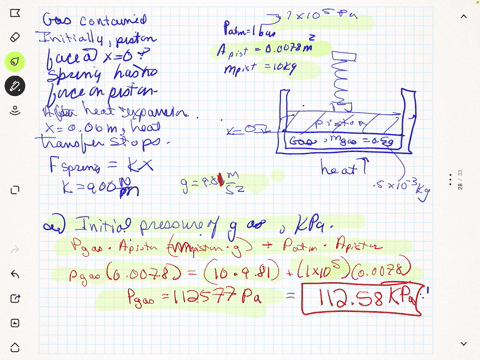 Gas contained
Initially, piston
face @ x=0.
Spring has no
force on piston.
After heat expansion
x = 0.06 m, heat
transfer stops.
F spring = Kx
K = 900 N/m
g = 9.81 m/s2
Patm = 1 bar
1 x 10^5 Pa
Apist = 0.0078 m^2
mpist = 10Kg
piston
x=0
Gas, mgas = 0.5g
heat↑
.5x10^-3 Kg
a) Initial pressure of gas, KPa.
Pgas · Apiston (mpiston · g) + Patm · Apiston
Pgas (0.0078) = (10 · 9.81) + (1x10^5)(0.0078)
Pgas = 112577 Pa = 112.58 KPa